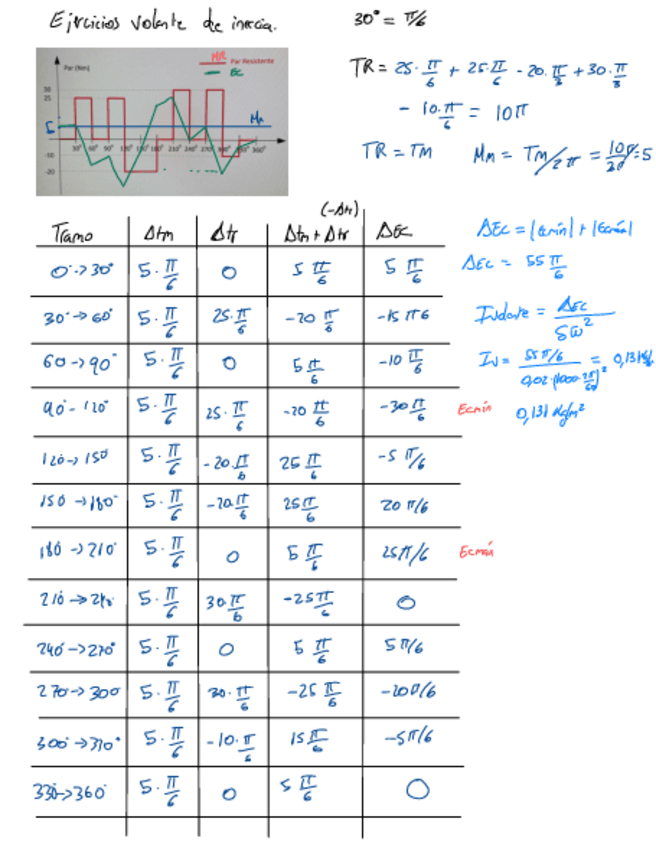 Ejercicios volante de inercia.
30° = π/6
MR
Par (Nm)
Par Resistente
EC
30
25
Mm
5
-10
-20
30° 60° 90° 120° 150° 180° 210° 240° 270° 300° 330° 360°
TR = 25·π/6 + 25·π/6 - 20·π/3 + 30·π/3
- 10·π/6 = 10π
TR = TM Mm = TM/2π = 10π/2π = 5
(-Δtr)
Tramo Δtm Δtr Δtm + Δtr ΔEC
0°->30° 5·π/6 0 5 π/6 5 π/6
30°->60° 5·π/6 25·π/6 -20 π/6 -15 π6
60->90° 5·π/6 0 5 π/6 -10 π/6
90-120° 5·π/6 25·π/6 -20 π/6 -30 π/6 Ecmín
120->150 5·π/6 -20 π/6 25 π/6 -5 π/6
150->180° 5·π/6 -20 π/6 25 π/6 20 π/6
180->210° 5·π/6 0 5 π/6 25 π/6 Ecmáx
210->240 5·π/6 30 π/6 -25 π/6 0
240->270° 5·π/6 0 5 π/6 5 π/6
270->300 5·π/6 30·π/6 -25 π/6 -20 π/6
300->330° 5·π/6 -10·π/6 15 π/6 -5 π/6
330->360° 5·π/6 0 5 π/6 0
ΔEC = |Ecmín| + |Ecmáx|
ΔEC = 55 π/6
Ivolante = ΔEC/δω̄²
Iv = (55π/6)/(0,02·(1000·2π/60)²) = 0,131
0,131 kg/m²